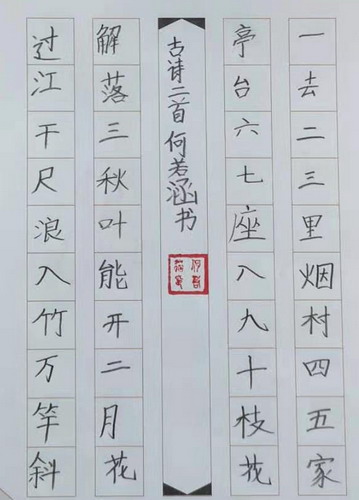 一去二三里烟村四五家
亭台六七座八九十枝花
古诗二首何若涵书
解落三秋叶能开二月花
过江千尺浪入竹万竿斜